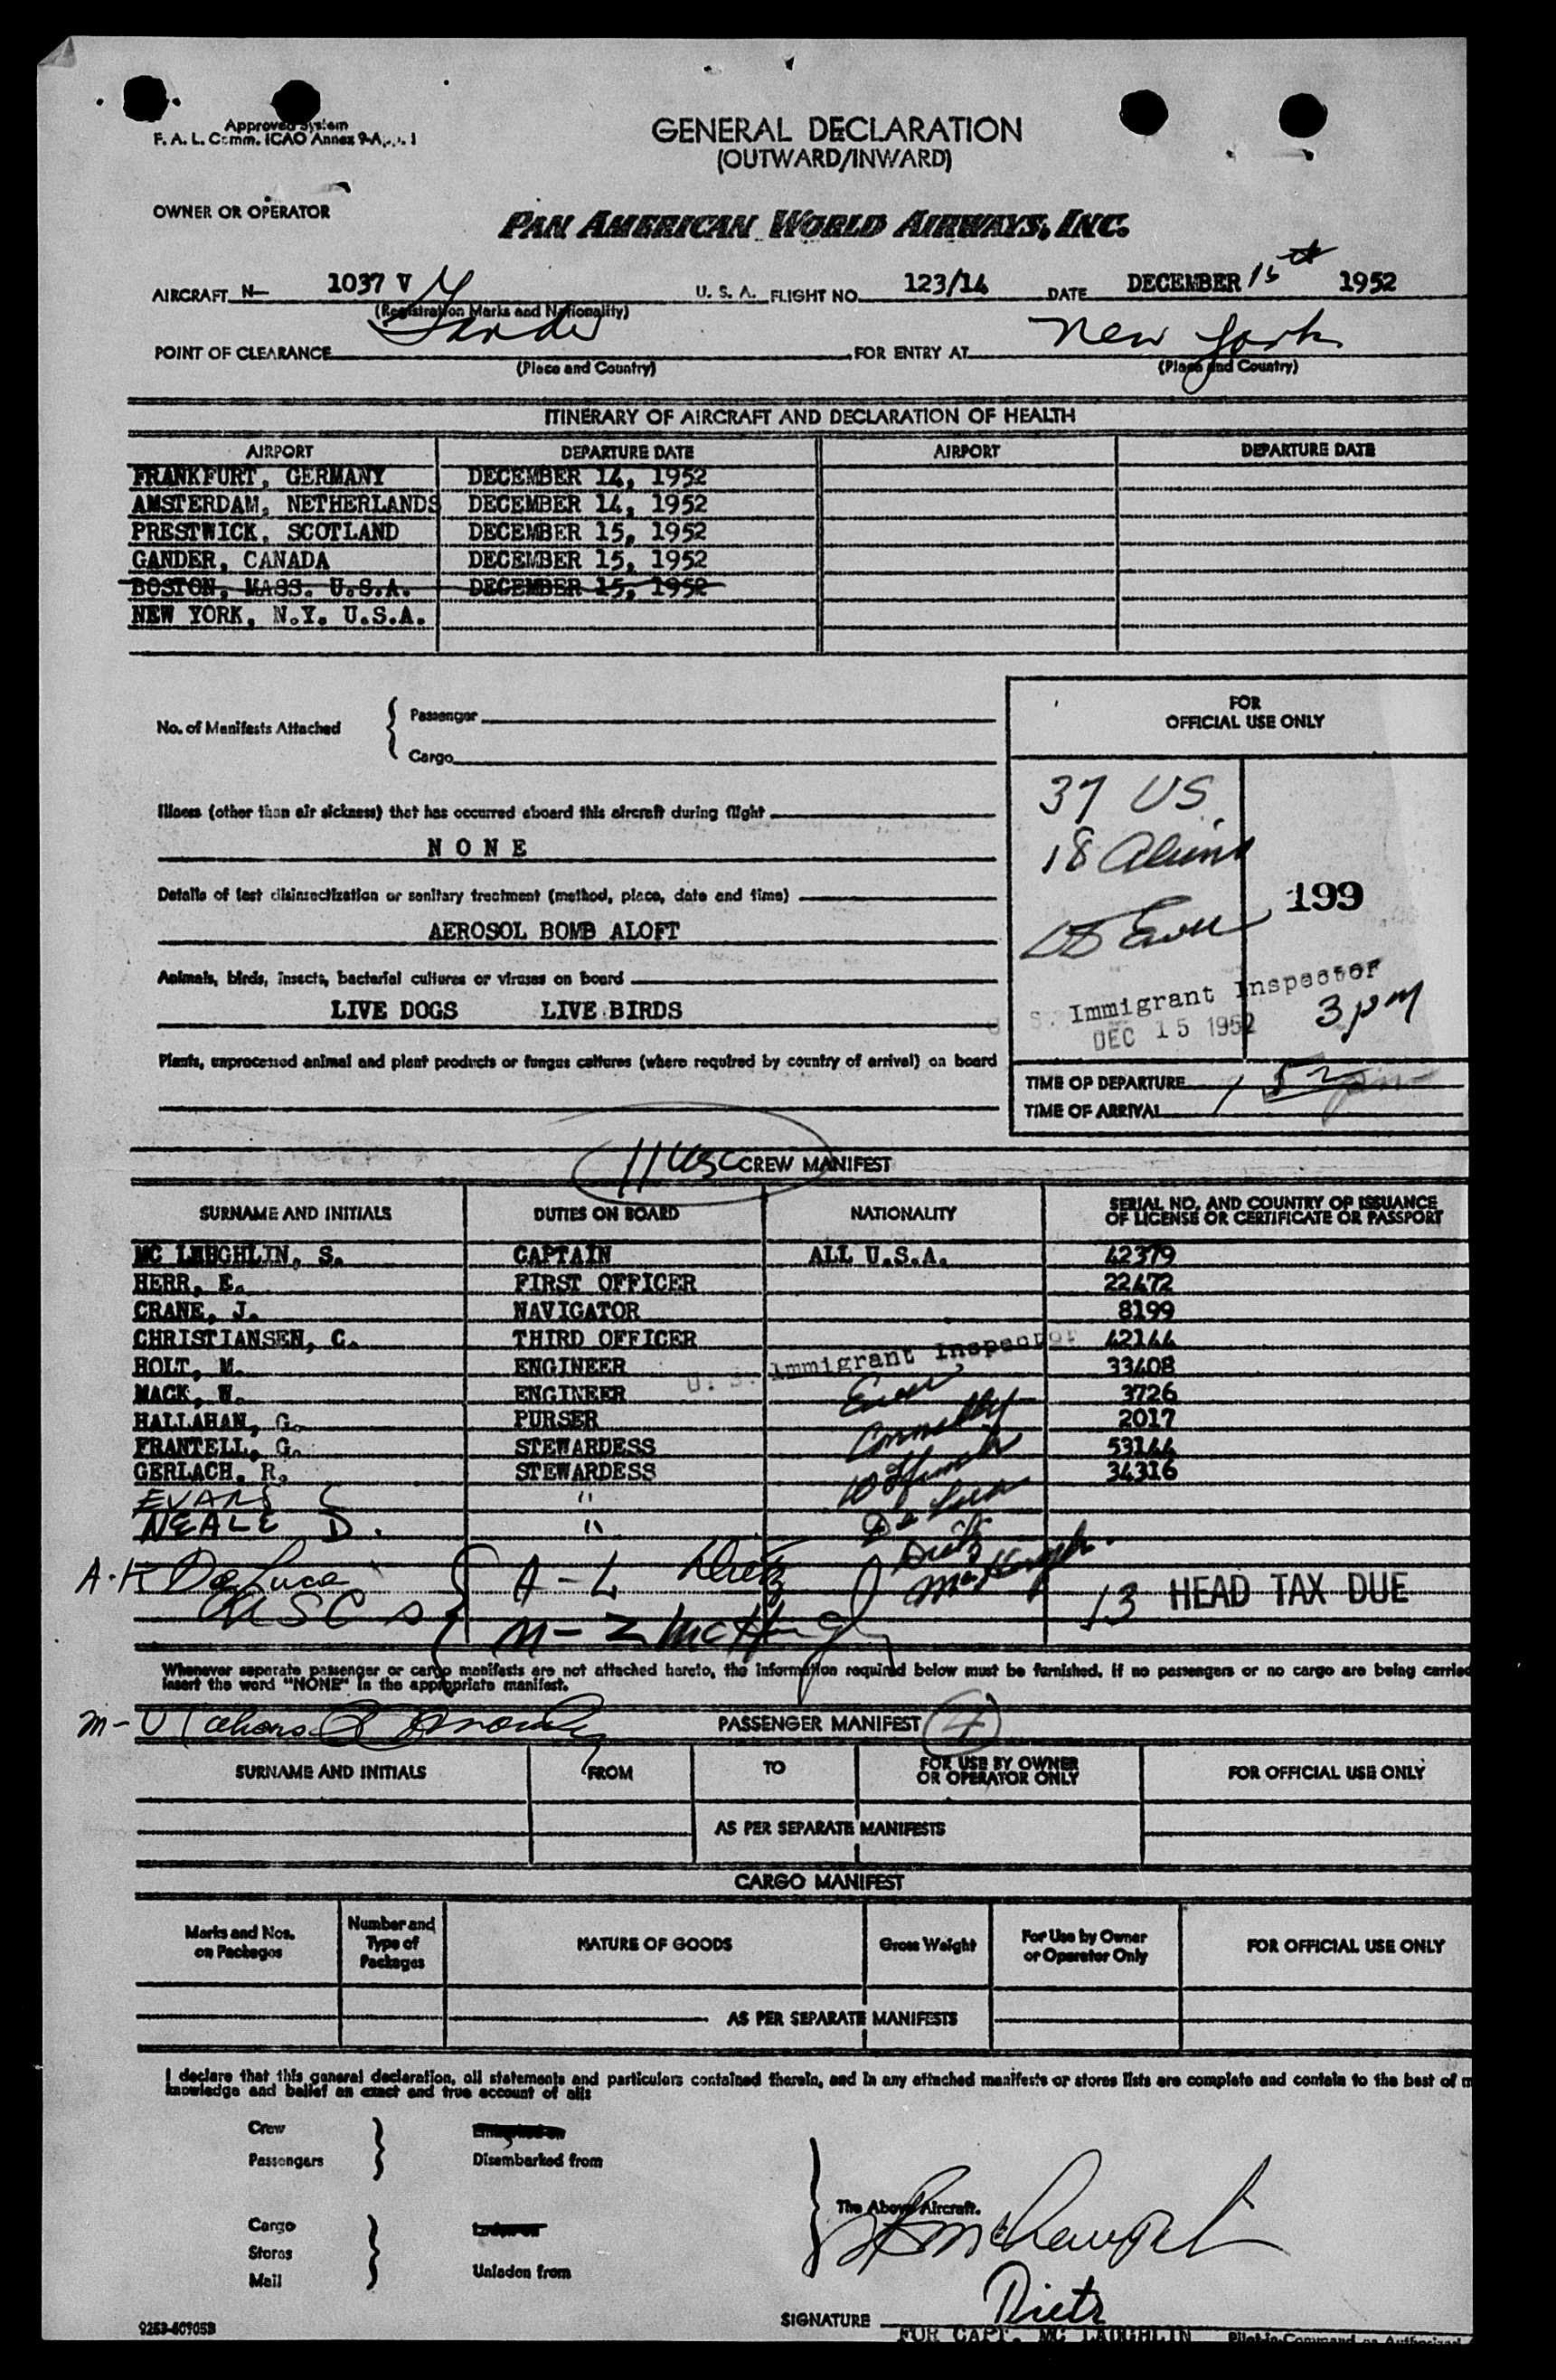 Approved System
F. A. L. Comm. ICAO Annex 9-App. 1
GENERAL DECLARATION
(OUTWARD/INWARD)
OWNER OR OPERATOR
PAN AMERICAN WORLD AIRWAYS, INC.
AIRCRAFT N- 1037 V U. S. A. FLIGHT NO. 123/14 DATE DECEMBER 15th 1952
(Registration Marks and Nationality)
POINT OF CLEARANCE Gander FOR ENTRY AT New York
(Place and Country) (Place and Country)
ITINERARY OF AIRCRAFT AND DECLARATION OF HEALTH
AIRPORT DEPARTURE DATE AIRPORT DEPARTURE DATE
FRANKFURT, GERMANY DECEMBER 14, 1952
AMSTERDAM, NETHERLANDS DECEMBER 14, 1952
PRESTWICK, SCOTLAND DECEMBER 15, 1952
GANDER, CANADA DECEMBER 15, 1952
BOSTON, MASS. U.S.A. DECEMBER 15, 1952
NEW YORK, N.Y. U.S.A.
No. of Manifests Attached
Passenger
Cargo
FOR
OFFICIAL USE ONLY
37 US
18 Aliens
199
U. S. Immigrant Inspector
DEC 15 1952
3 pm
Illness (other than air sickness) that has occurred aboard this aircraft during flight
N O N E
Details of last disinsectization or sanitary treatment (method, place, date and time)
AEROSOL BOMB ALOFT
Animals, birds, insects, bacterial cultures or viruses on board
LIVE DOGS LIVE BIRDS
Plants, unprocessed animal and plant products or fungus cultures (where required by country of arrival) on board
TIME OF DEPARTURE
TIME OF ARRIVAL 1 52 pm
11 USC CREW MANIFEST
SURNAME AND INITIALS DUTIES ON BOARD NATIONALITY SERIAL NO. AND COUNTRY OF ISSUANCE
OF LICENSE OR CERTIFICATE OR PASSPORT
MC LAUGHLIN, S. CAPTAIN ALL U.S.A. 42379
HERR, E. FIRST OFFICER 22472
CRANE, J. NAVIGATOR 8199
CHRISTIANSEN, C. THIRD OFFICER 42144
HOLT, M. ENGINEER 33408
U. S. Immigrant Inspector
MACK, W. ENGINEER 3726
HALLAHAN, G. PURSER 2017
FRANTELL, G. STEWARDESS Connolly 53144
GERLACH, R. STEWARDESS 34316
EVANS "
NEALE D. " De Luca
Dietz
A-K DeLuca A-L Dietz McHugh
USC s M-Z McHugh
13 HEAD TAX DUE
Whenever separate passenger or cargo manifests are not attached hereto, the information required below must be furnished. If no passengers or no cargo are being carried
insert the word "NONE" in the appropriate manifest.
PASSENGER MANIFEST 4
SURNAME AND INITIALS FROM TO FOR USE BY OWNER
OR OPERATOR ONLY FOR OFFICIAL USE ONLY
AS PER SEPARATE MANIFESTS
CARGO MANIFEST
Marks and Nos.
on Packages
Number and
Type of
Packages
NATURE OF GOODS
Gross Weight
For Use by Owner
or Operator Only
FOR OFFICIAL USE ONLY
AS PER SEPARATE MANIFESTS
I declare that this general declaration, all statements and particulars contained therein, and in any attached manifests or stores lists are complete and contain to the best of m
knowledge and belief an exact and true account of all:
Crew
Passengers Disembarked from
The Above Aircraft.
Cargo
Stores
Mail Unladen from
Dietz
SIGNATURE
FOR CAPT. MC LAUGHLIN Pilot-in-Command or Authorized
9253-60905B